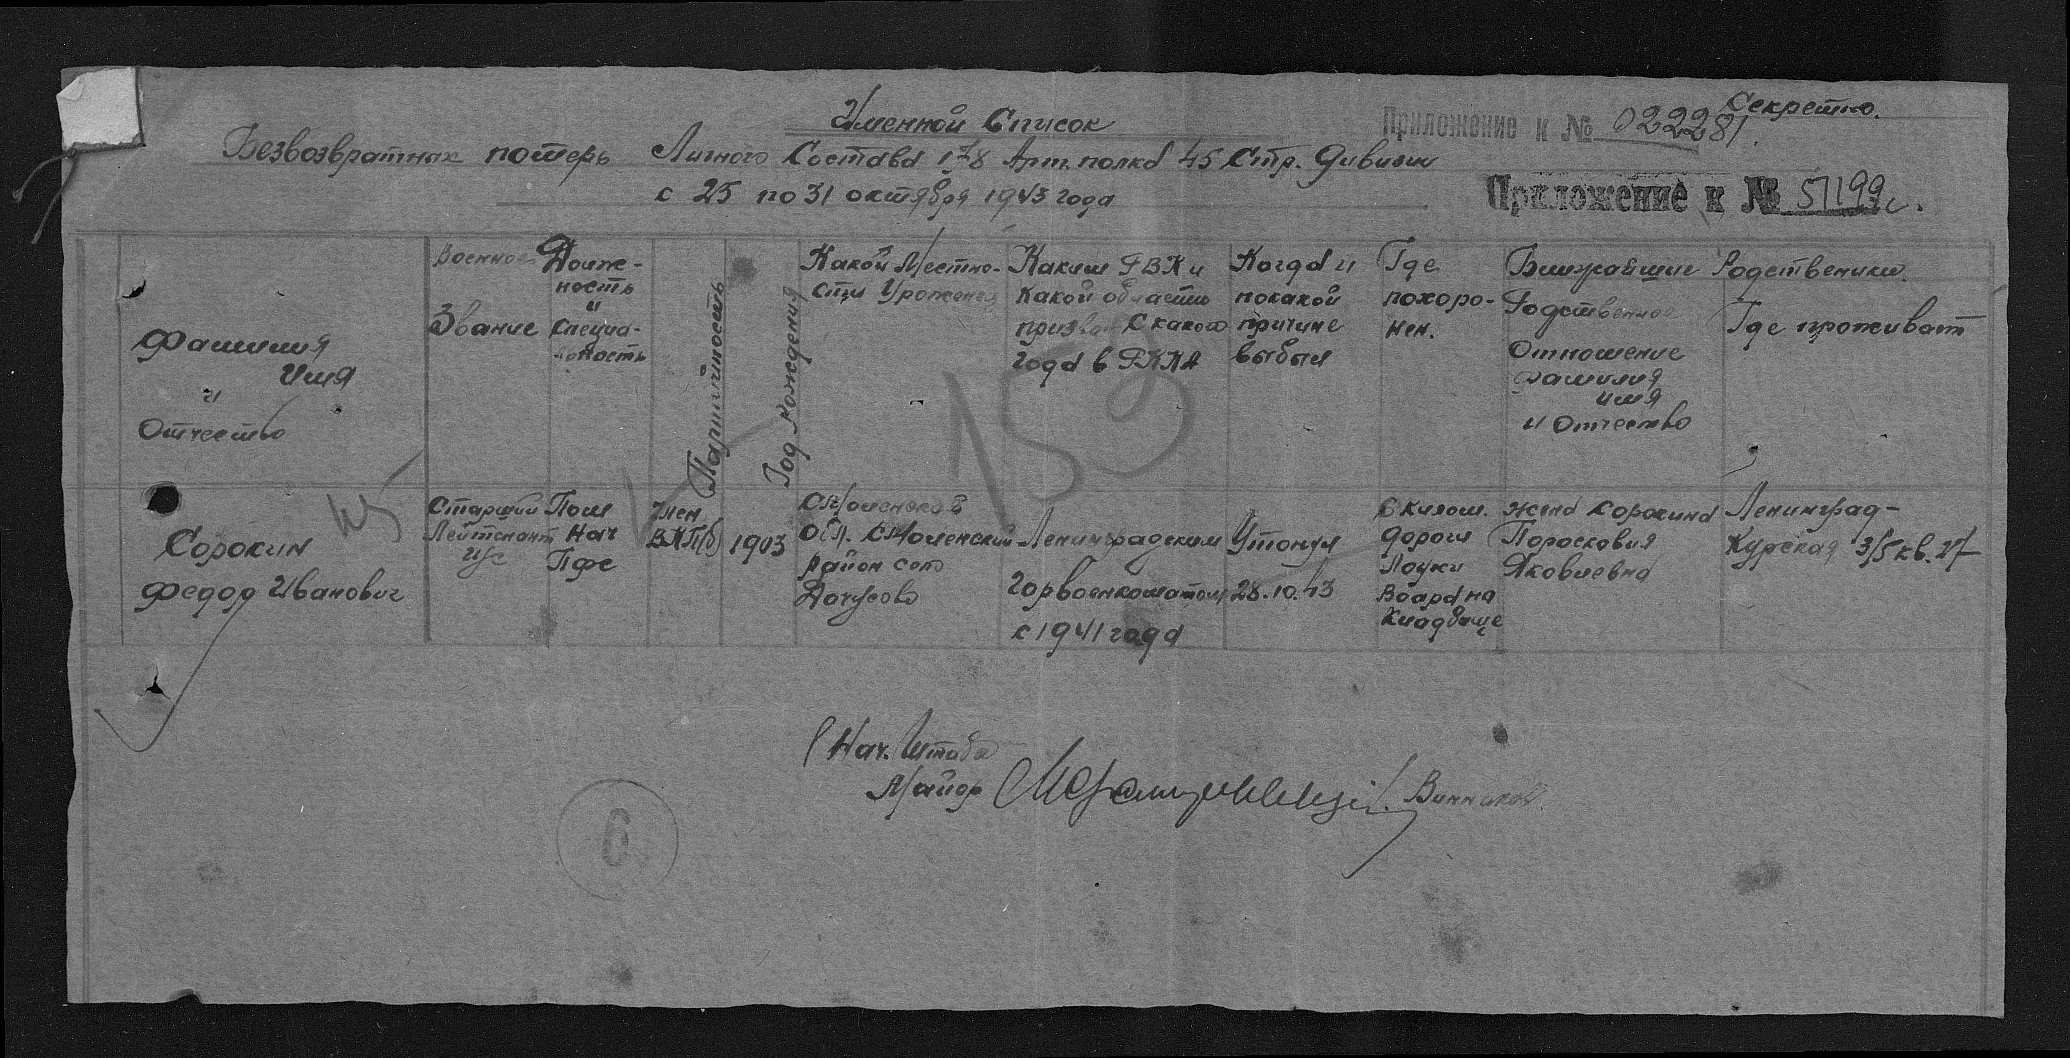 Секретно.
Именной Список
Приложение к № 022281
Безвозвратных потерь Личного Состава 178 Арт. полка 45 Стр. Дивизии
с 25 по 31 октября 1943 года
Приложение к № 51199с.
Фамилия
Имя
и
Отчество
Военное
Звание
Долж-
ность
и
специа-
льность
Партийность
Год рождения
Какой Местно-
сти Уроженец
Каким РВК и
какой области
призван С какого
года в РККА
Когда и
по какой
причине
выбыл
Где
похоро-
нен.
Ближайшие Родственики
Родственное
Отношение
фамилия
имя
и Отчество
Где проживают
159
Сорокин
Федор Иванович
Старший
Лейтенант
и/с
Пом
Нач
Пфс
Член
ВКП(б)
1903
Смоленской
Обл. Смоленский
район село
Ленинградским
Горвоенкоматом
с 1941 года
Утонул
28.10.43
6 килом.
дороги
Лоухи
на
кладбище
жена Сорокина
Поросковия
Яковлевна
Ленинград-
Курская 3/5 кв. 27
Нач. Штаба
Майор
Винников
6